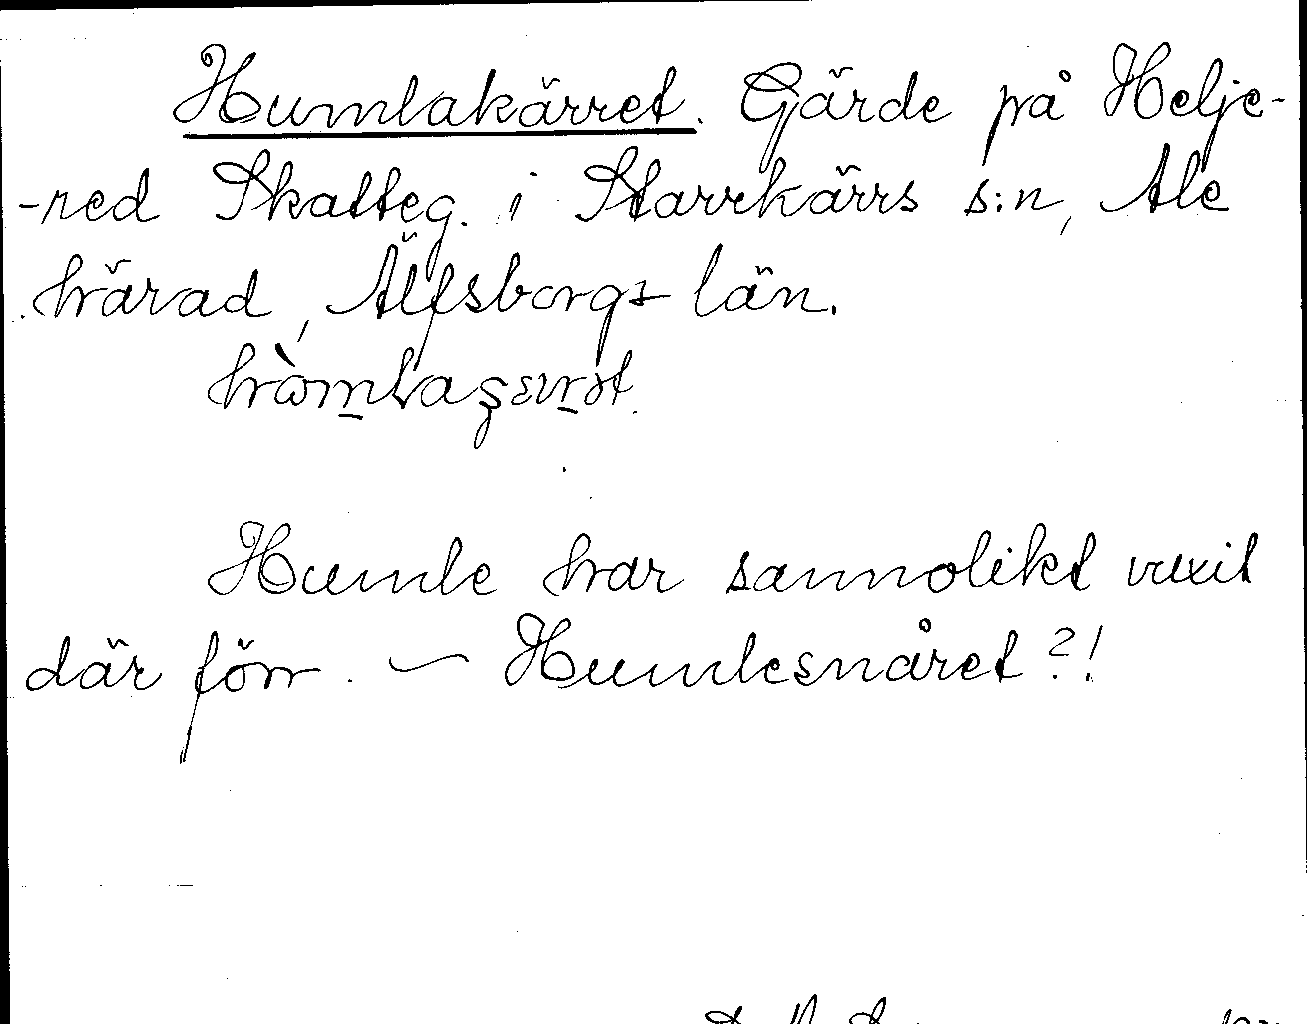 Humlakärret. Gärde på Helje-
-red Skatteg. i Starrkärrs s:n, Ale
härad, Älfsborgs län.
Humle har sannolikt vuxit
där förr. — Humlesnåret?!